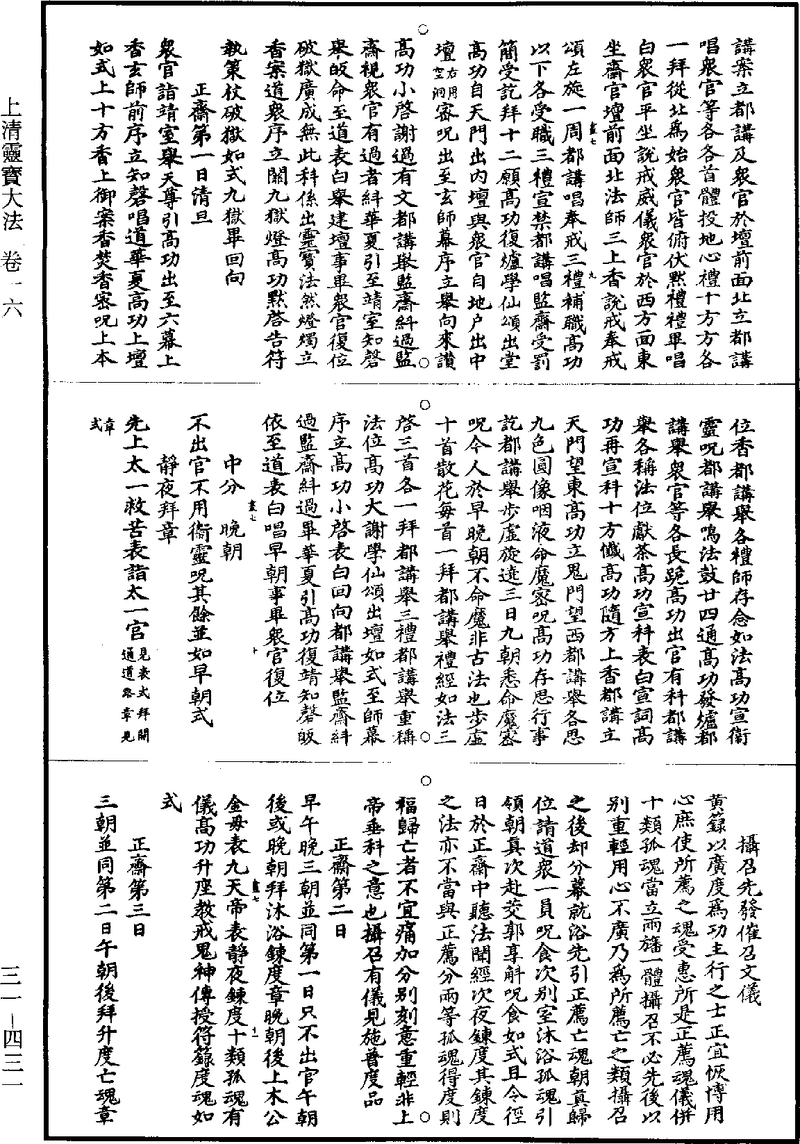 上清靈寶大法　卷一六
三一—四三一
講案立都講及衆官於壇前面北立都講
唱衆官等各各首體投地心禮十方方各
一拜從北爲始衆官皆俯伏默禮禮畢唱
白衆官平坐說戒威儀衆官於西方面東
坐齋官壇前面北法師三上香說戒奉戒
頌左旋一周都講唱奉戒三禮補職高功
以下各受職三禮宣禁都講唱監齋受罰
簡受訖拜十二願高功復爐學仙頌出堂
高功自天門出內壇與衆官自地户出中
壇右用空洞密呪出至玄師幕序立舉向來讚
高功小啓謝過有文都講舉監齋糾過監
齋視衆官有過者糾華夏引至靖室知磬
舉皈命至道表白舉建壇事畢衆官復位
破獄廣成無此科係出靈寶法然燈燭立
香案道衆序立關九獄燈高功默啓告符
執策杖破獄如式九獄畢回向
正齋第一日清旦
衆官詣靖室舉天尊引高功出至六幕上
香玄師前序立知磬唱道華夏高功上壇
如式上十方香上御案香焚香密呪上本
位香都講舉各禮師存念如法高功宣衛
靈呪都講舉鳴法鼓廿四通高功發爐都
講舉衆官等各長跪高功出官有科都講
舉各稱法位獻茶高功宣科表白宣詞高
功再宣科十方懺高功隨方上香都講立
天門望東高功立鬼門望西都講舉各思
九色圓像咽液命魔密呪高功存思行事
訖都講舉步虛旋遶三日九朝悉命魔密
呪今人於早晚朝不命魔非古法也步虛
十首散花每首一拜都講舉禮經如法三
啓三首各一拜都講舉三禮都講舉重稱
法位高功大謝學仙頌出壇如式至師幕
序立高功小啓表白回向都講舉監齋糾
過監齋糾過畢華夏引高功復靖知磬皈
依至道表白唱早朝事畢衆官復位
中分　晚朝
不出官不用衛靈呪其餘並如早朝式
靜夜拜章
先上太一救苦表詣太一宮見表式拜開通道路章見章式
攝召先發催召文儀
黃籙以廣度爲功主行之士正宜恢慱用
心庶使所薦之魂受惠所是正薦魂儀併
十類孤魂當立兩旛一體攝召不必先後以
別重輕用心不廣乃爲所薦亡之類攝召
之後却分幕就浴先引正薦亡魂朝真歸
位請道衆一員呪食次別室沐浴孤魂引
領朝真次赴茭郭享斛呪食如式且令徑
日於正齋中聽法聞經次夜鍊度其鍊度
之法亦不當與正薦分兩等孤魂得度則
福歸亡者不宜痛加分別刻意重輕非上
帝垂科之意也攝召有儀見施普度品
正齋第二日
早午晚三朝並同第一日只不出官午朝
後或晚朝拜沐浴鍊度章晚朝後上木公
金毋表九天帝表靜夜鍊度十類孤魂有
儀高功升座教戒鬼神傳授符籙度魂如
式
正齋第三日
三朝並同第二日午朝後拜升度亡魂章